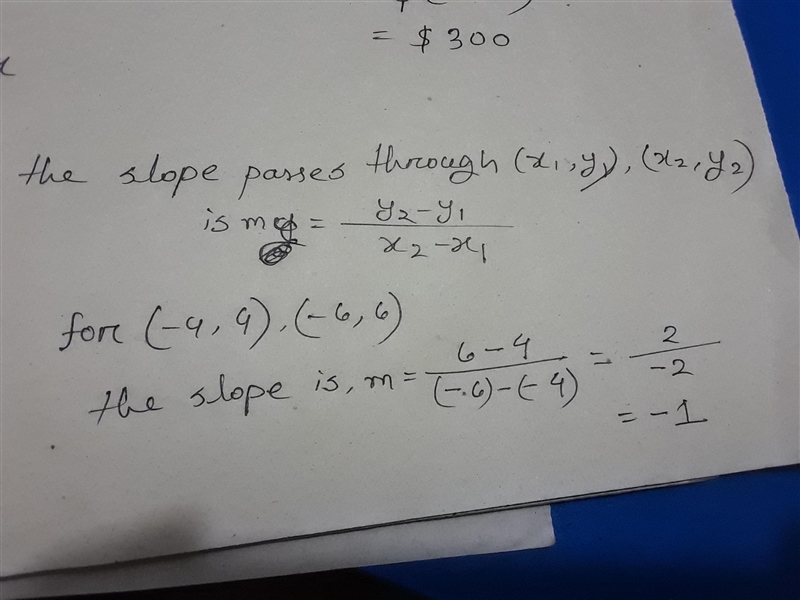 = $ 300
the slope passes through (x₁, y₁), (x₂, y₂)
is m = y₂-y₁ / x₂-x₁
for (-4, 4), (-6, 6)
the slope is, m = 6-4 / (-6)-(-4) = 2 / -2
= -1